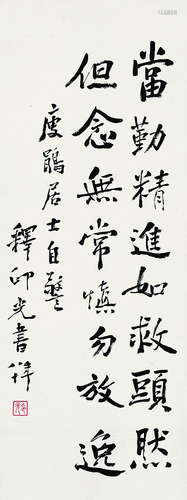 當勤精進如救頭然
但念無常慎勿放逸
瘦鵑居士自警
釋印光書